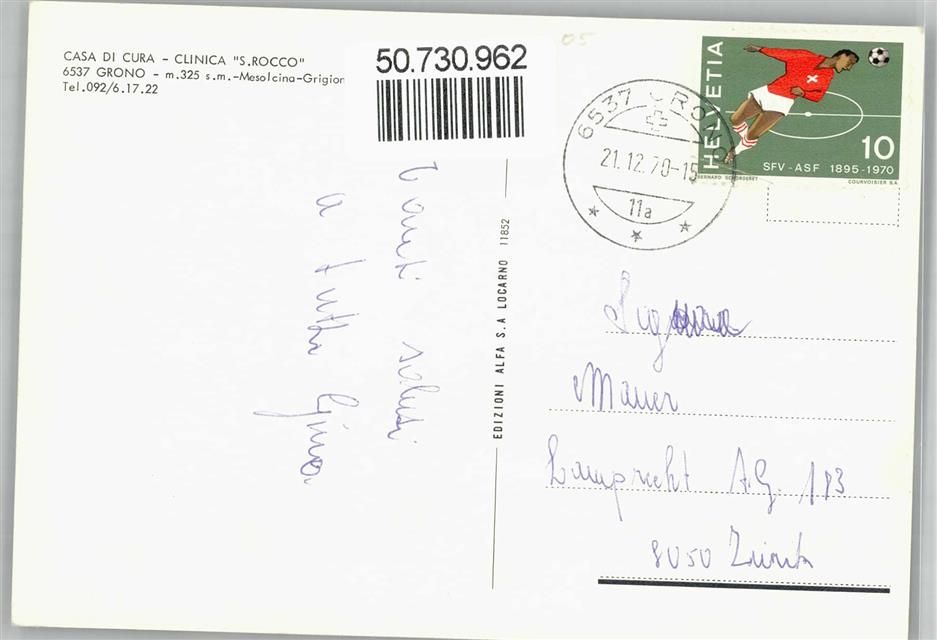 CASA DI CURA - CLINICA "S.ROCCO"
6537 GRONO - m.325 s.m.-Mesolcina-Grigion
Tel.092/6.17.22
50.730.962
05
6537 GRONO
21.12.70-15
11a
HELVETIA
10
SFV-ASF 1895-1970
BERNARD SCHORDERET
COURVOISIER S.A.
Tanti saluti
a tutti
EDIZIONI ALFA S.A LOCARNO 11852
Maurer
Lamprecht A.G. 183
8050 Zürich